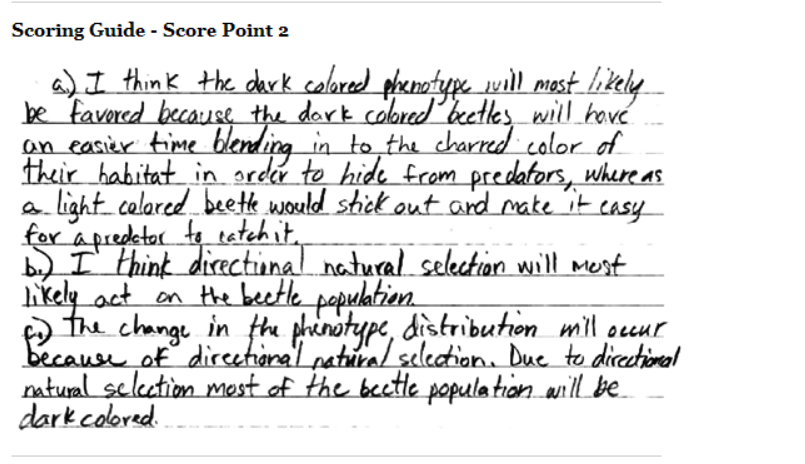 Scoring Guide - Score Point 2
a.) I think the dark colored phenotype will most likely
be favored because the dark colored beetles will have
an easier time blending in to the charred color of
their habitat in order to hide from predators, where as
a light colored beetle would stick out and make it easy
for a predator to catch it.
b.) I think directional natural selection will most
likely act on the beetle population.
c.) The change in the phenotype distribution will occur
because of directional natural selection. Due to directional
natural selection most of the beetle population will be
dark colored.